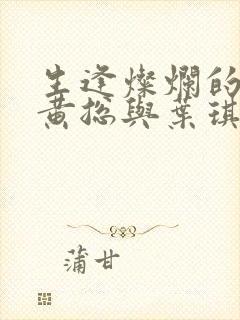 生逢燦爛的
黄總與葉琪
蒲甘